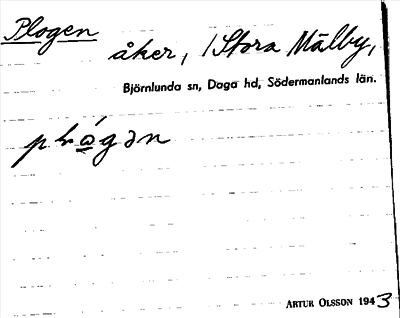 Plogen
åker, /Stora Mälby,
Björnlunda sn, Daga hd, Södermanlands län.
ARTUR OLSSON 1943